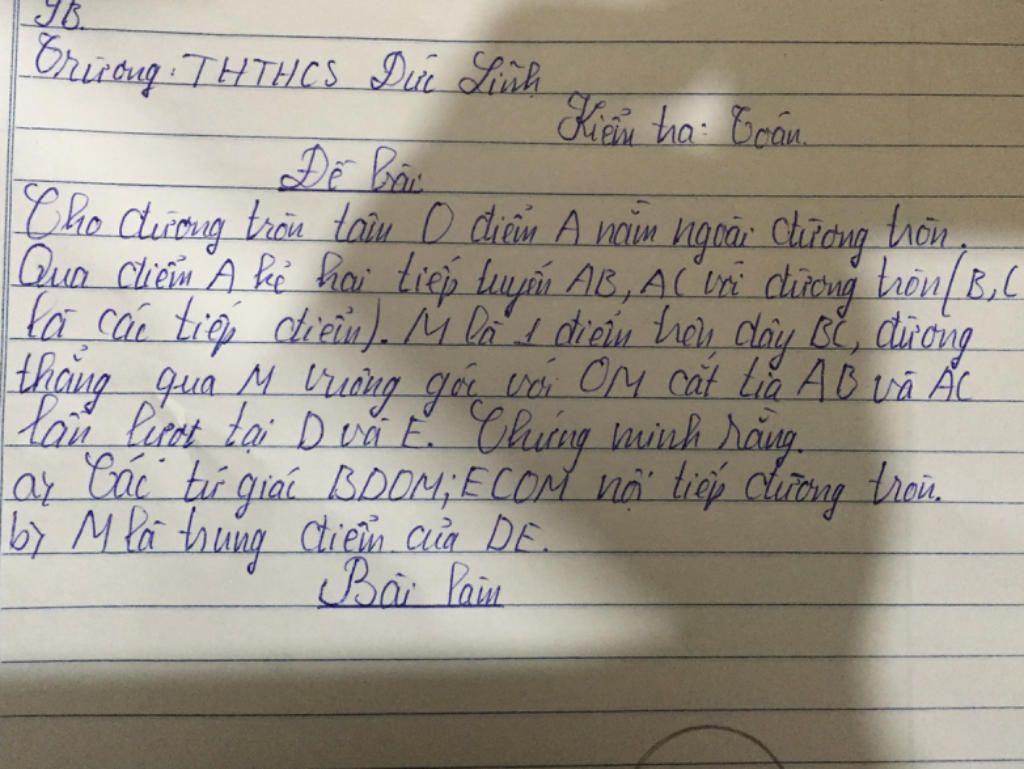 9B.
Trường: THTHCS Đức Lĩnh
Kiểm tra: Toán.
Đề bài
Cho đường tròn tâm O điểm A nằm ngoài đường tròn.
Qua điểm A kẻ hai tiếp tuyến AB, AC với đường tròn (B, C
là các tiếp điểm). M là 1 điểm trên dây BC, đường
thẳng qua M vuông góc với OM cắt tia AB và AC
lần lượt tại D và E. Chứng minh rằng.
a) Các tứ giác BDOM; ECOM nội tiếp đường tròn.
b) M là trung điểm của DE.
Bài làm